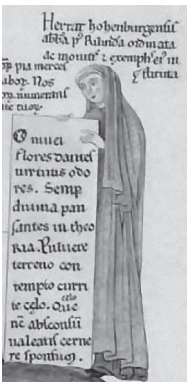 Herrat hohenburgensis
abbā p9 Rilindā ordinata
ac monitis & exemplis ei9 in
stituta
pia merces
labor. Nos
munerans
O nivei
flores dantes
virtutis odo
res. Semp
divina pau
santes in theo
ria. Pulvere
terreno con
tempto curri
te celo. Que
nc̄ absconsū
valeatis cerne
re sponsum.